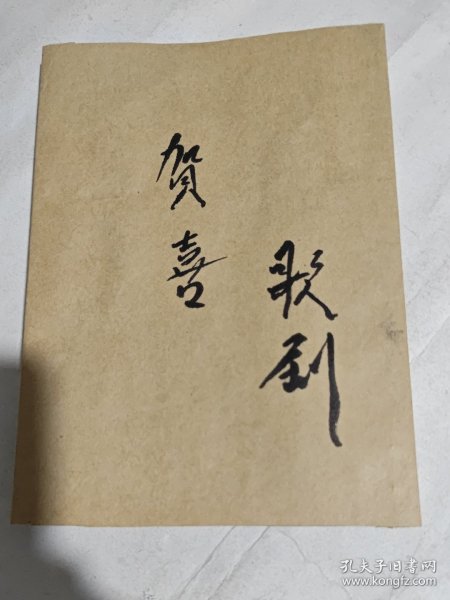 歌剧
賀喜
孔夫子旧书网
www.kongfz.com